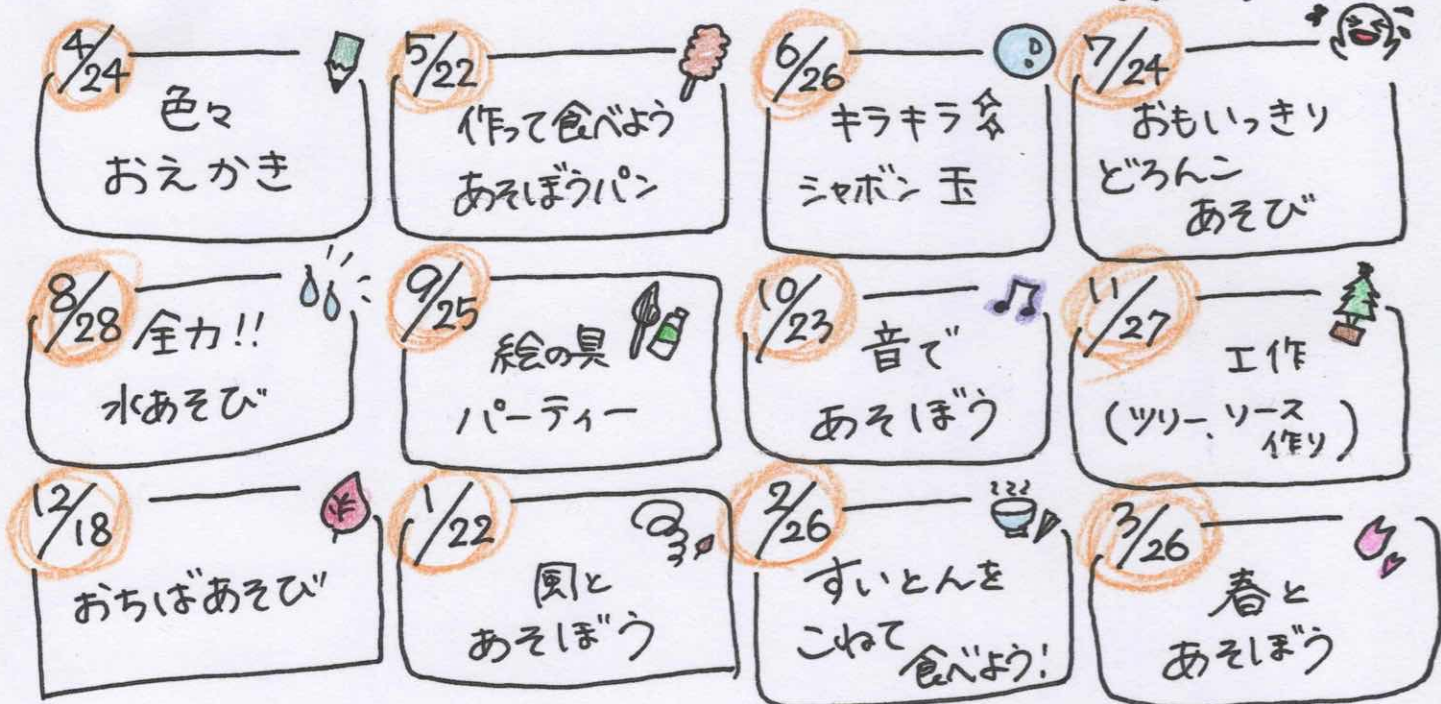 4/24
色々
おえかき
5/22
作って食べよう
あそぼうパン
6/26
キラキラ
シャボン玉
7/24
おもいっきり
どろんこ
あそび
8/28
全力!!
水あそび
9/25
絵の具
パーティー
10/23
音で
あそぼう
11/27
工作
(ツリー、ソース
作り)
12/18
おちばあそび
1/22
風と
あそぼう
2/26
すいとんを
こねて
食べよう!
3/26
春と
あそぼう